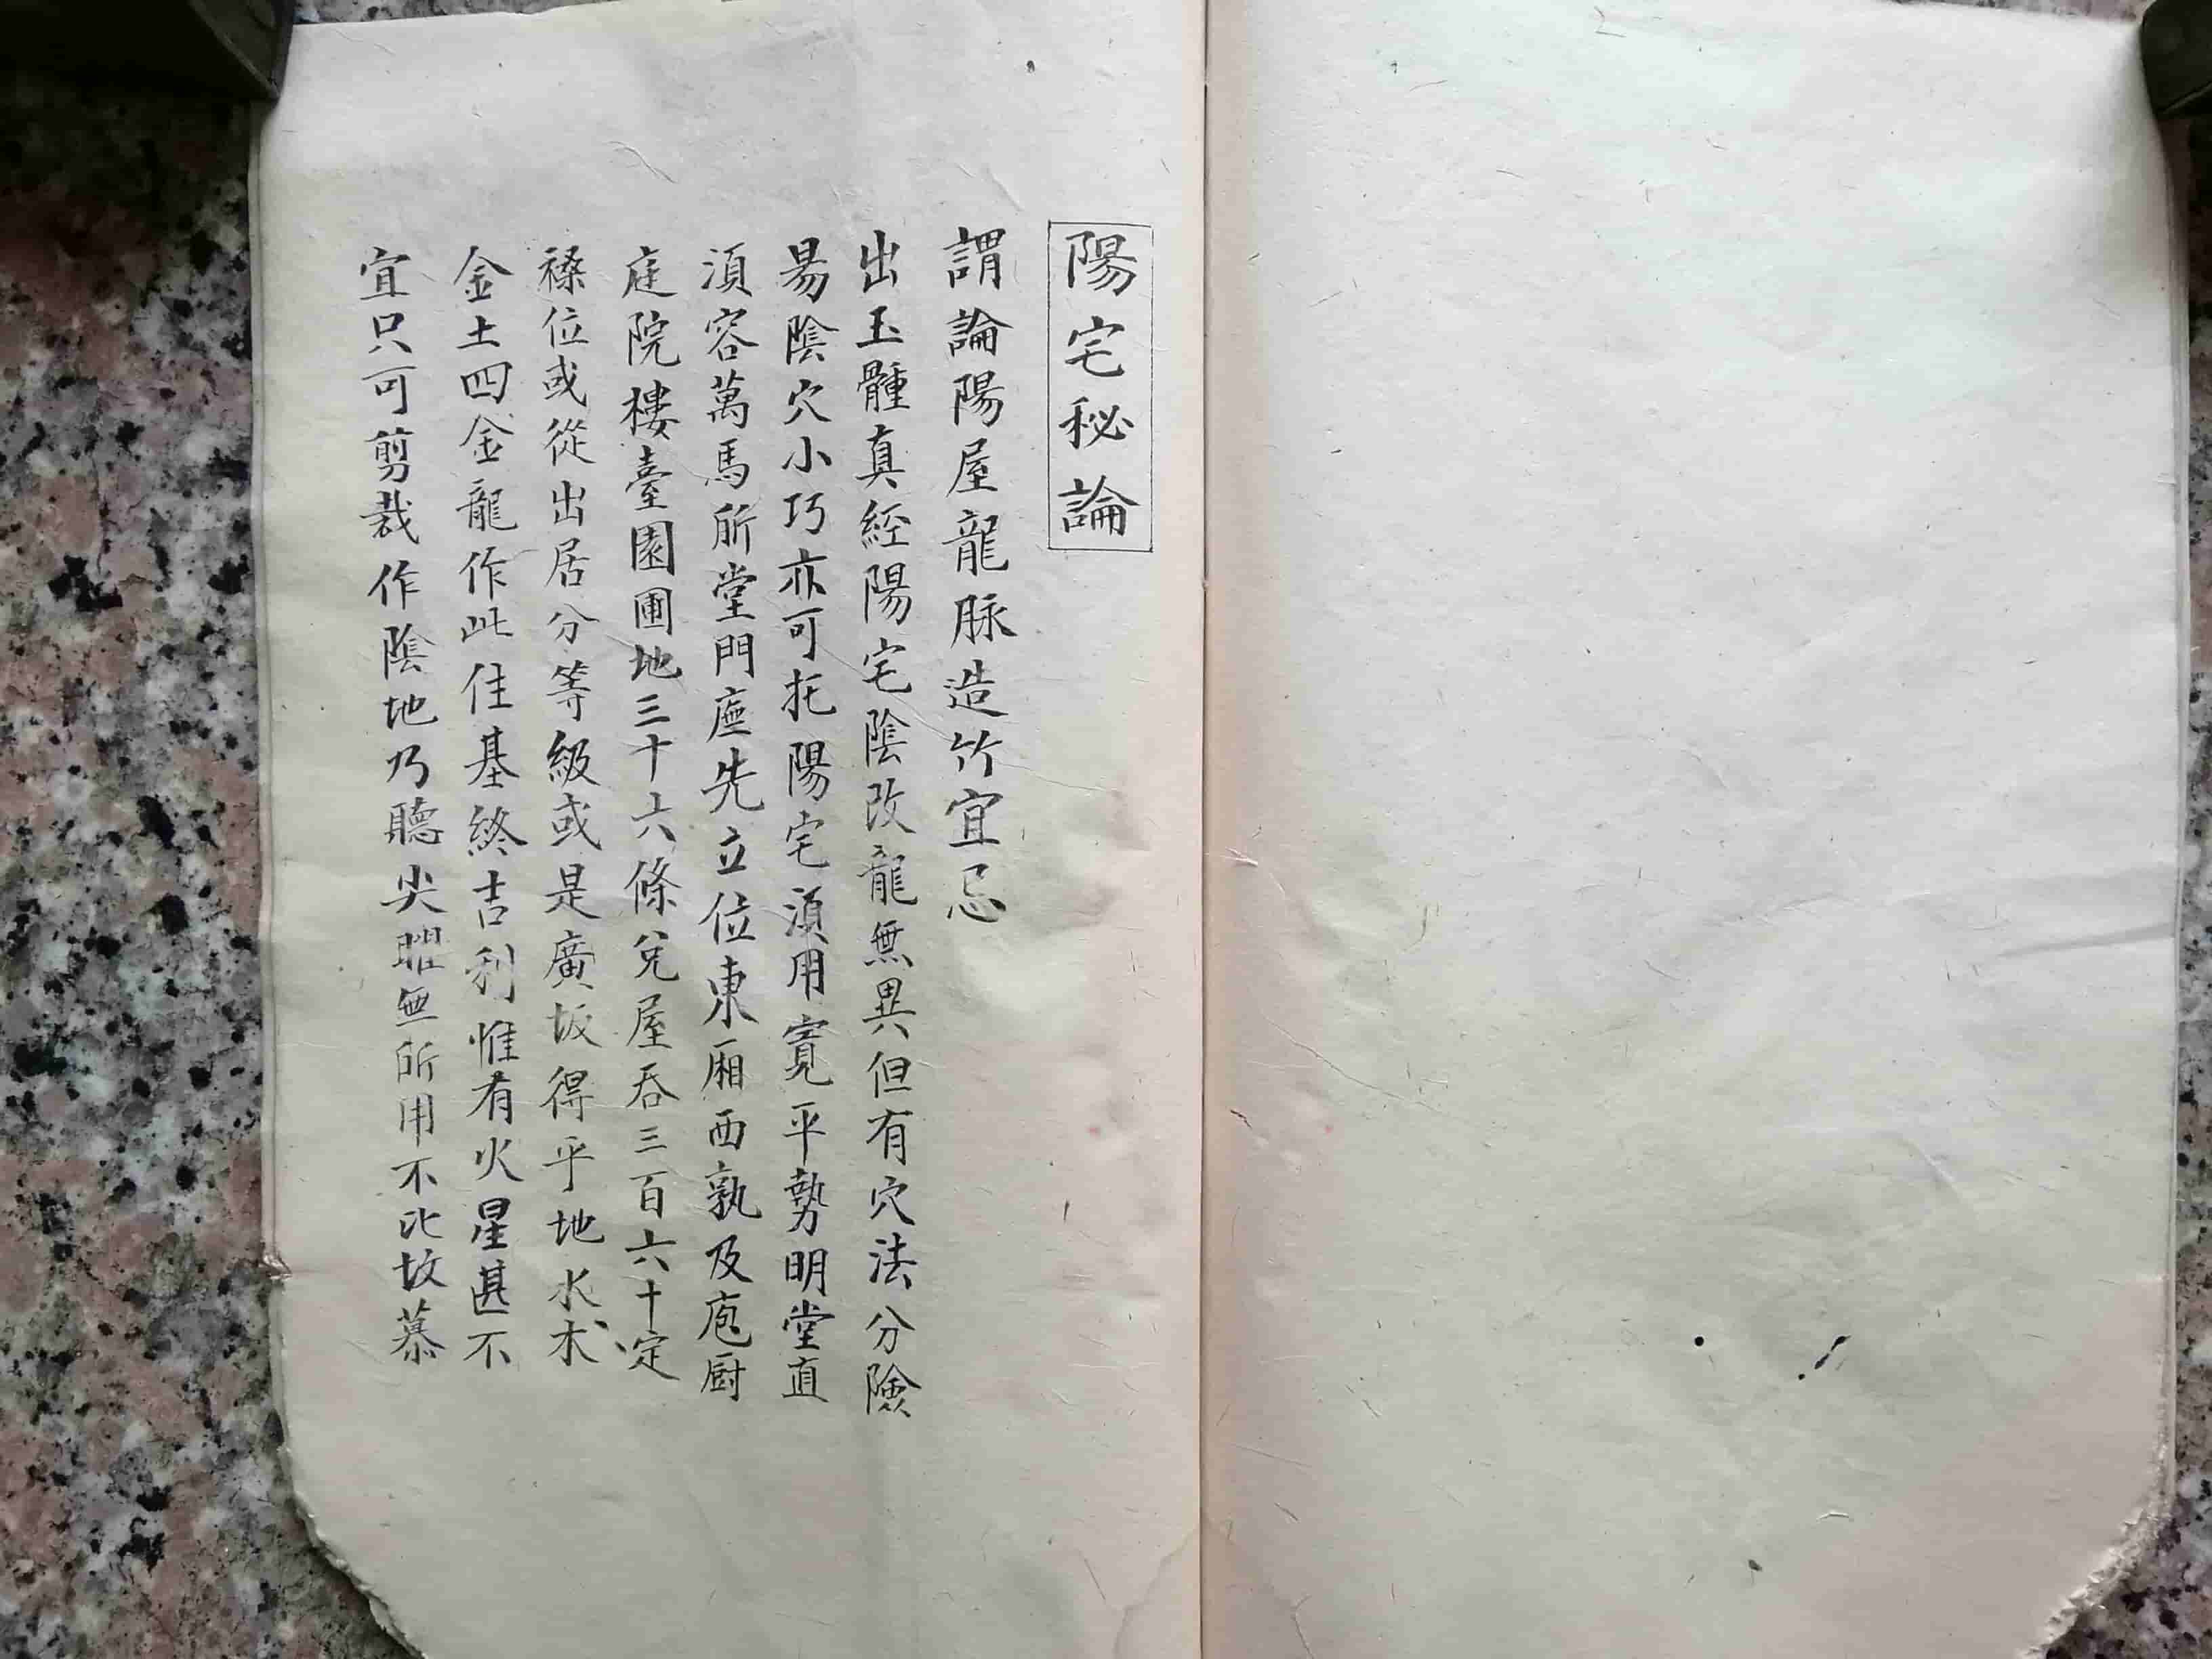 陽宅秘論
謂論陽屋龍脉造竹宜忌
出玉髄真經陽宅陰改龍無異但有穴法分險
易陰穴小巧亦可托陽宅湏用寛平勢明堂直
湏容萬馬所堂門庭先立位東厢西孰及庖厨
庭院樓臺園圃地三十六條兌屋吞三百六十定
禄位或從出居分等級或是廣坂得乎地水木
金土四金龍作此佳基終吉利惟有火星甚不
宜只可剪裁作陰地乃聽尖曜無所用不比坟慕